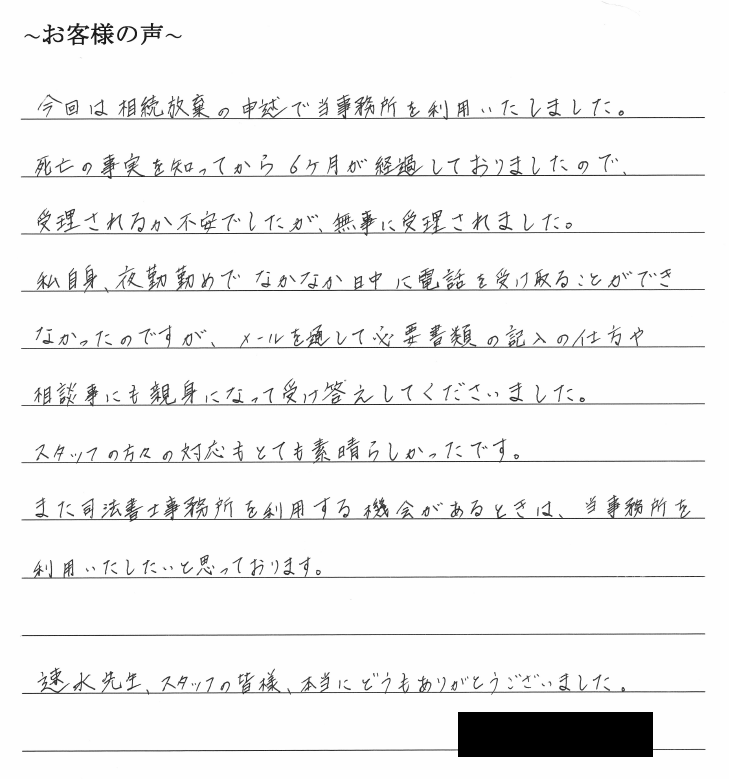 ~お客様の声~
今回は相続放棄の申述で当事務所を利用いたしました。
死亡の事実を知ってから6ケ月が経過しておりましたので、
受理されるか不安でしたが、無事に受理されました。
私自身、夜勤勤めでなかなか日中に電話を受け取ることができ
なかったのですが、メールを通して必要書類の記入の仕方や
相談事にも親身になって受け答えしてくださいました。
スタッフの方々の対応もとても素晴らしかったです。
また司法書士事務所を利用する機会があるときは、当事務所を
利用いたしたいと思っております。
速水先生、スタッフの皆様、本当にどうもありがとうございました。